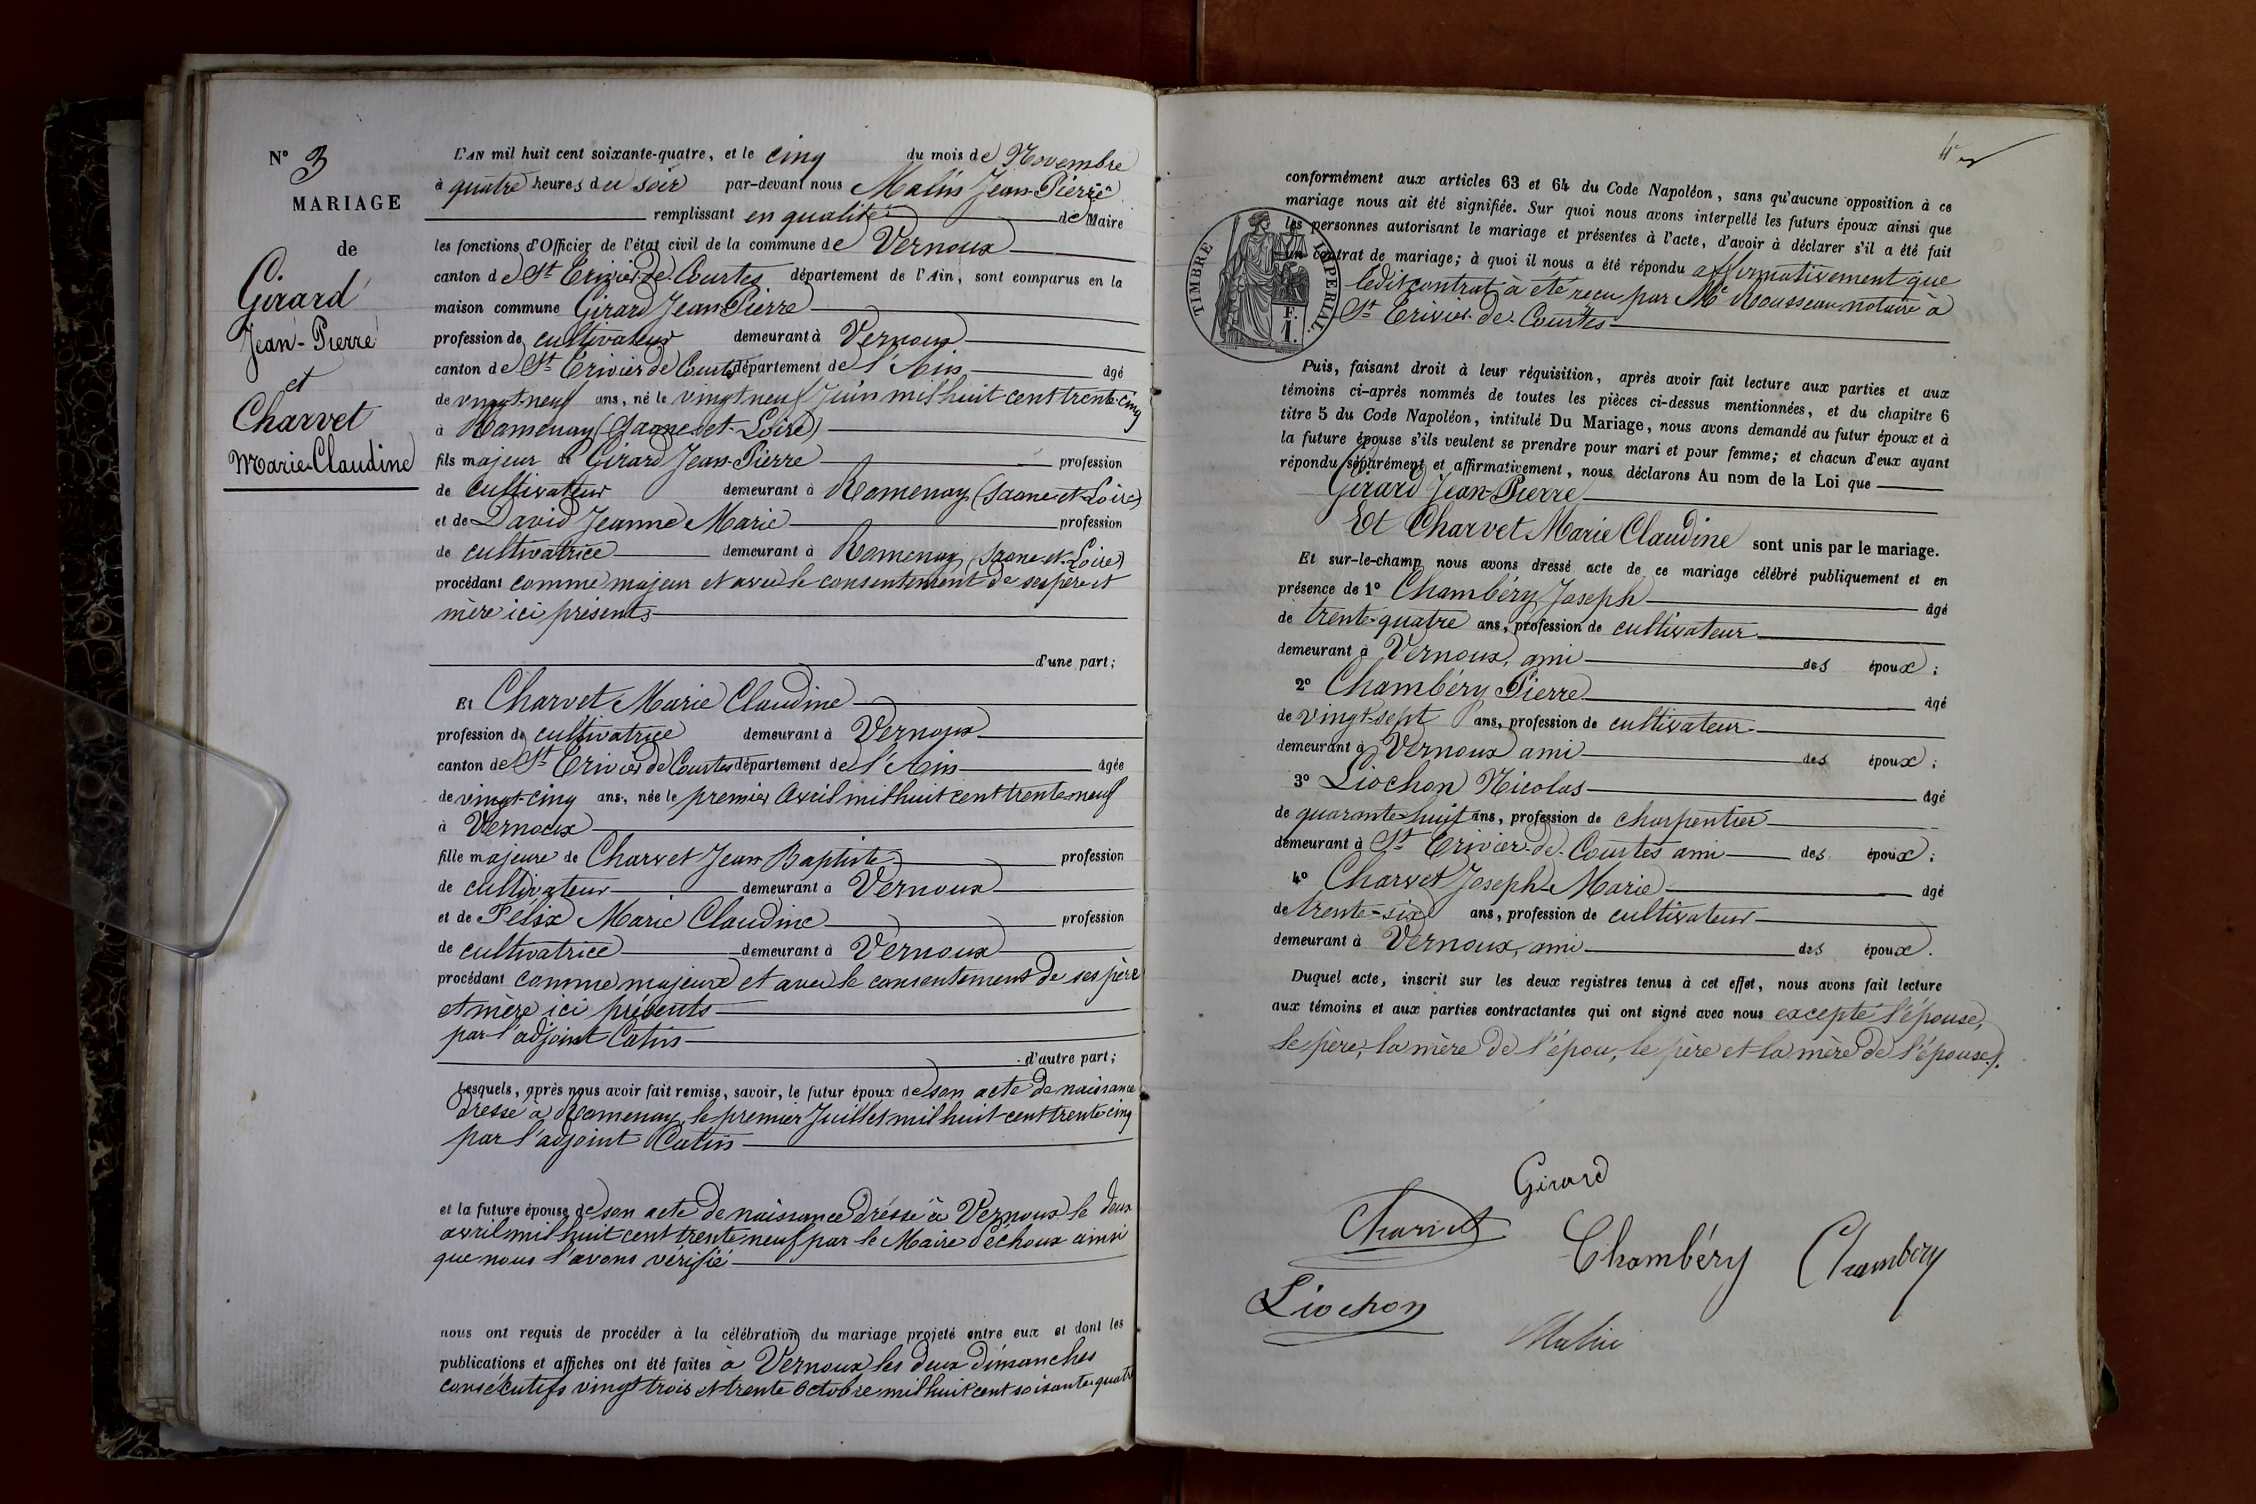 N° 3
MARIAGE
de
Girard
Jean-Pierre
et
Charvet
Marie Claudine
L'AN mil huit cent soixante-quatre, et le cinq du mois de Novembre
à quatre heures du soir par-devant nous Malin Jean-Pierre
remplissant en qualité de Maire
les fonctions d'Officier de l'état civil de la commune de Vernoux
canton de St Trivier de Courtes département de l'Ain, sont comparus en la
maison commune Girard Jean Pierre
profession de cultivateur demeurant à Vernoux
canton de St Trivier de Courtes département de l'Ain âgé
de vingt-neuf ans, né le vingt neuf Juin mil huit cent trente-cinq
à Romenay (Saone-et-Loire)
fils majeur de Girard Jean-Pierre profession
de cultivateur demeurant à Romenay (Saone-et-Loire)
et de David Jeanne Marie profession
de cultivatrice demeurant à Romenay (Saone-et-Loire)
procédant comme majeur et avec le consentement de ses père et
mère ici présents
d'une part;
Et Charvet Marie Claudine
profession de cultivatrice demeurant à Vernoux
canton de St Trivier de Courtes département de l'Ain âgée
de vingt-cinq ans, née le premier Avril mil huit cent trente-neuf
à Vernoux
fille majeure de Charvet Jean Baptiste profession
de cultivateur demeurant à Vernoux
et de Félix Marie Claudine profession
de cultivatrice demeurant à Vernoux
procédant comme majeure et avec le consentement de ses père
et mère ici présents
par l'adjoint Catin
d'autre part;
Lesquels, après nous avoir fait remise, savoir, le futur époux de son acte de naissance
dressé à Romenay, le premier Juillet mil huit cent trente-cinq
par l'adjoint Catin
et la future épouse de son acte de naissance dressé à Vernoux le deux
avril mil huit cent trente neuf par le Maire Déchoux ainsi
que nous l'avons vérifié
nous ont requis de procéder à la célébration du mariage projeté entre eux et dont les
publications et affiches ont été faites à Vernoux les deux dimanches
consécutifs vingt trois et trente Octobre mil huit cent soixante-quatre
conformément aux articles 63 et 64 du Code Napoléon, sans qu'aucune opposition à ce
mariage nous ait été signifiée. Sur quoi nous avons interpellé les futurs époux ainsi que
les personnes autorisant le mariage et présentes à l'acte, d'avoir à déclarer s'il a été fait
un contrat de mariage; à quoi il nous a été répondu affirmativement que
ledit contrat à été reçu par Me Rousseau notaire à
St Trivier-de-Courtes
TIMBRE IMPERIAL.
F.
1.
Puis, faisant droit à leur réquisition, après avoir fait lecture aux parties et aux
témoins ci-après nommés de toutes les pièces ci-dessus mentionnées, et du chapitre 6
titre 5 du Code Napoléon, intitulé Du Mariage, nous avons demandé au futur époux et à
la future épouse s'ils veulent se prendre pour mari et pour femme; et chacun d'eux ayant
répondu séparément et affirmativement, nous déclarons Au nom de la Loi que
Girard Jean-Pierre
Et Charvet Marie Claudine sont unis par le mariage.
Et sur-le-champ nous avons dressé acte de ce mariage célébré publiquement et en
présence de 1° Chambéry Joseph âgé
de trente-quatre ans, profession de cultivateur
demeurant à Vernoux, ami des époux;
2° Chambéry Pierre âgé
de vingt-sept ans, profession de cultivateur
demeurant à Vernoux ami des époux;
3° Liochon Nicolas âgé
de quarante-huit ans, profession de charpentier
demeurant à St Trivier-de-Courtes ami des époux;
4° Charvet Joseph-Marie âgé
de trente-six ans, profession de cultivateur
demeurant à Vernoux, ami des époux.
Duquel acte, inscrit sur les deux registres tenus à cet effet, nous avons fait lecture
aux témoins et aux parties contractantes qui ont signé avec nous excepté l'épouse,
le père, la mère de l'épou, le père et la mère de l'épouse.
Girard
Charvet
Chambéry Chambéry
Liochon
Malin